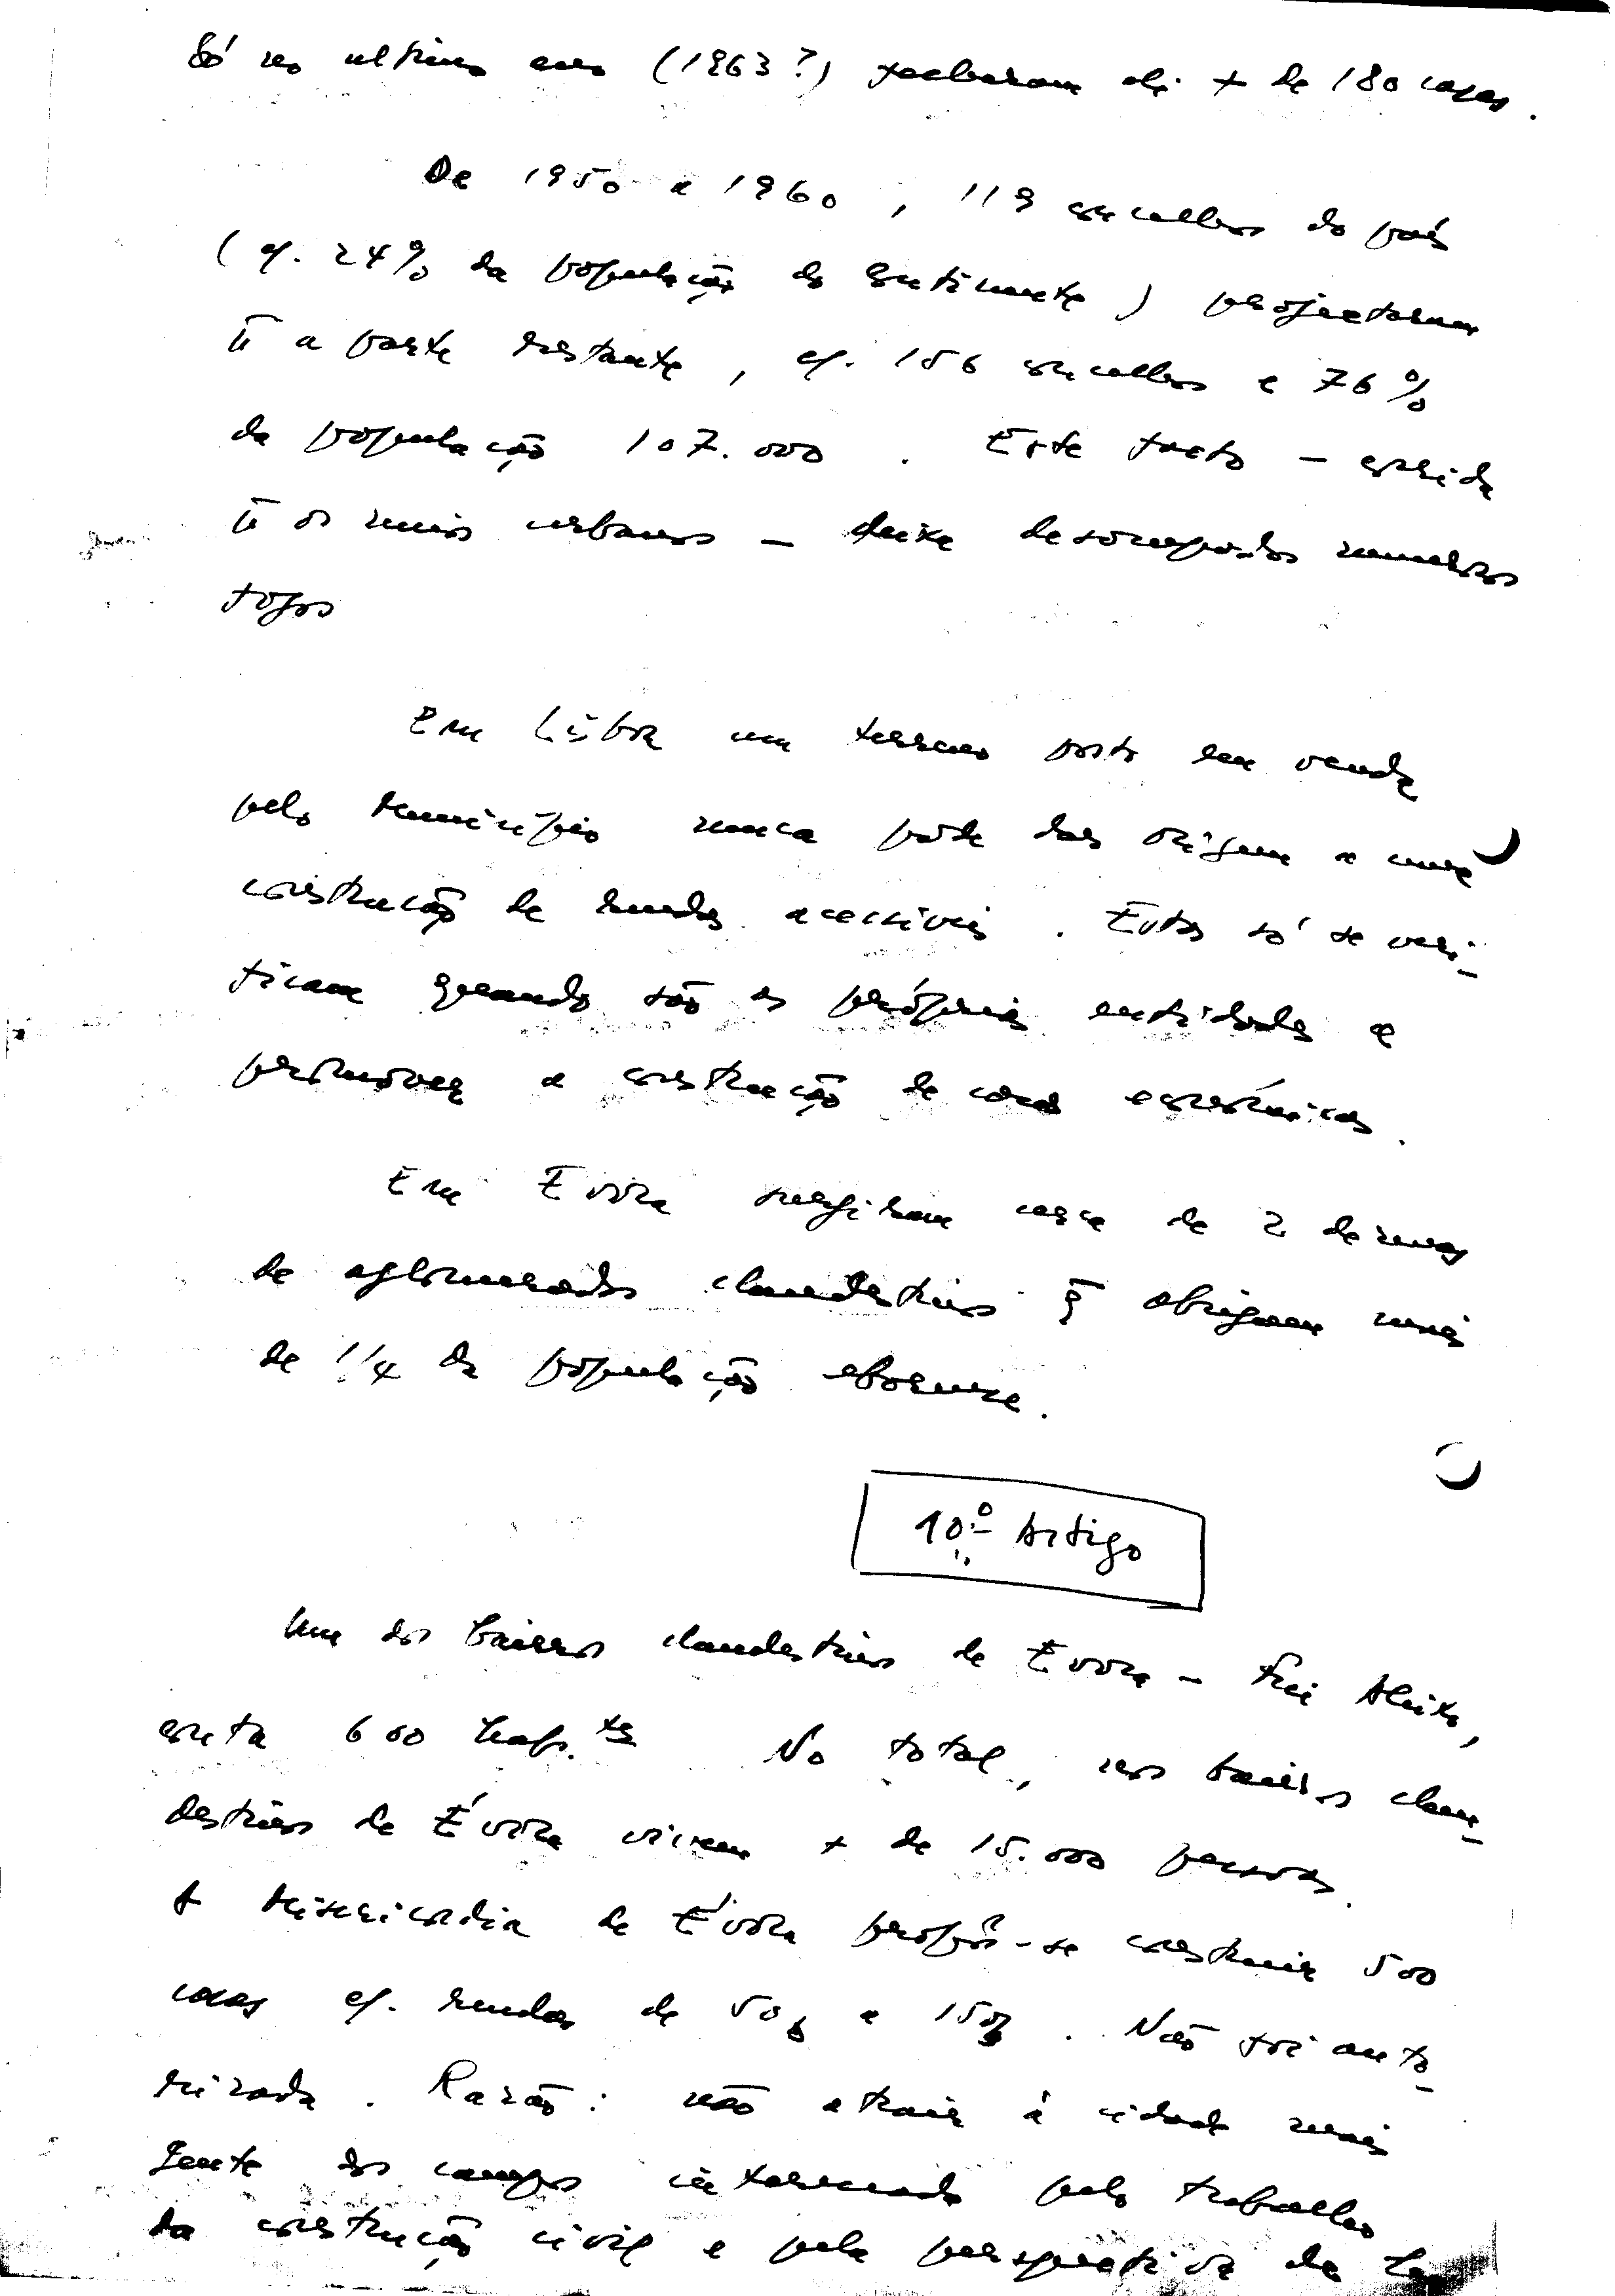 Só no ultimo ano (1963?) fecharam ali + de 180 casas.
De 1950 a 1960, 119 concelhos do país
(c/. 24% da população do Continente) projectaram
a parte restante, c/. 156 concelhos e 76%
da população 107.000. Este facto — corrida
os meios urbanos — deixa desocupados numerosos
fogos
Em Lisboa um terreno posto em venda
pelo Município nunca pode dar origem a uma
construção de rendas acessíveis. Estas só se veri-
ficam quando são as próprias entidades a
promover a construção de casas económicas.
Em Evora surgiram cerca de 2 dezenas
de aglomerados clandestinos q̄ abrigam mais
de 1/4 da população eborense.
10.º Artigo
Um dos bairros clandestinos de Evora — Frei Aleixo,
conta 600 hab.tes No total, nos bairros clan-
destinos de Évora vivem + de 15.000 pessoas.
A Misericordia de Évora propôs-se construir 500
casas c/. rendas de 50$ a 150$. Não foi auto-
rizada. Razão: não atrair à cidade mais
gente dos campos interessada pelo trabalho
da construção civil e pela perspectiva de